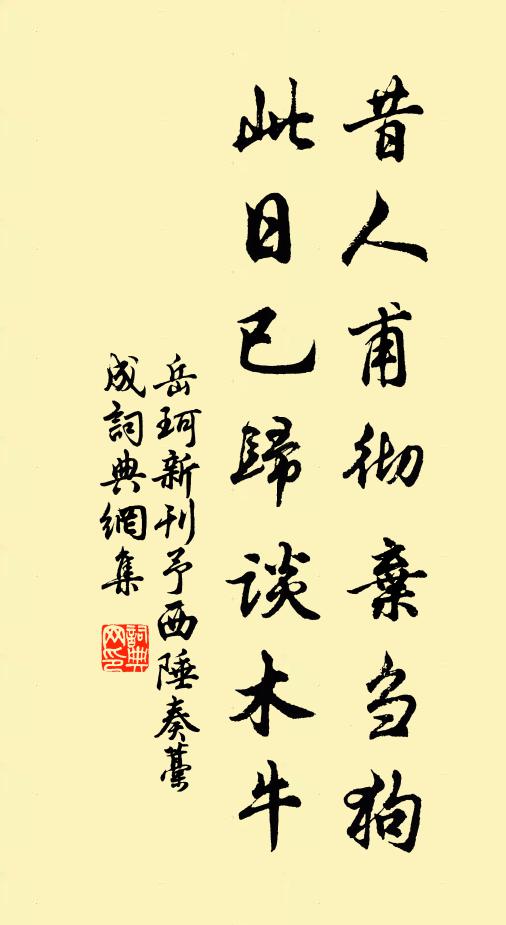 昔人甫彻棄刍狗
此日已歸谈木牛
岳珂新刊予西陲奏藁
成詞典網集
詞典
网印